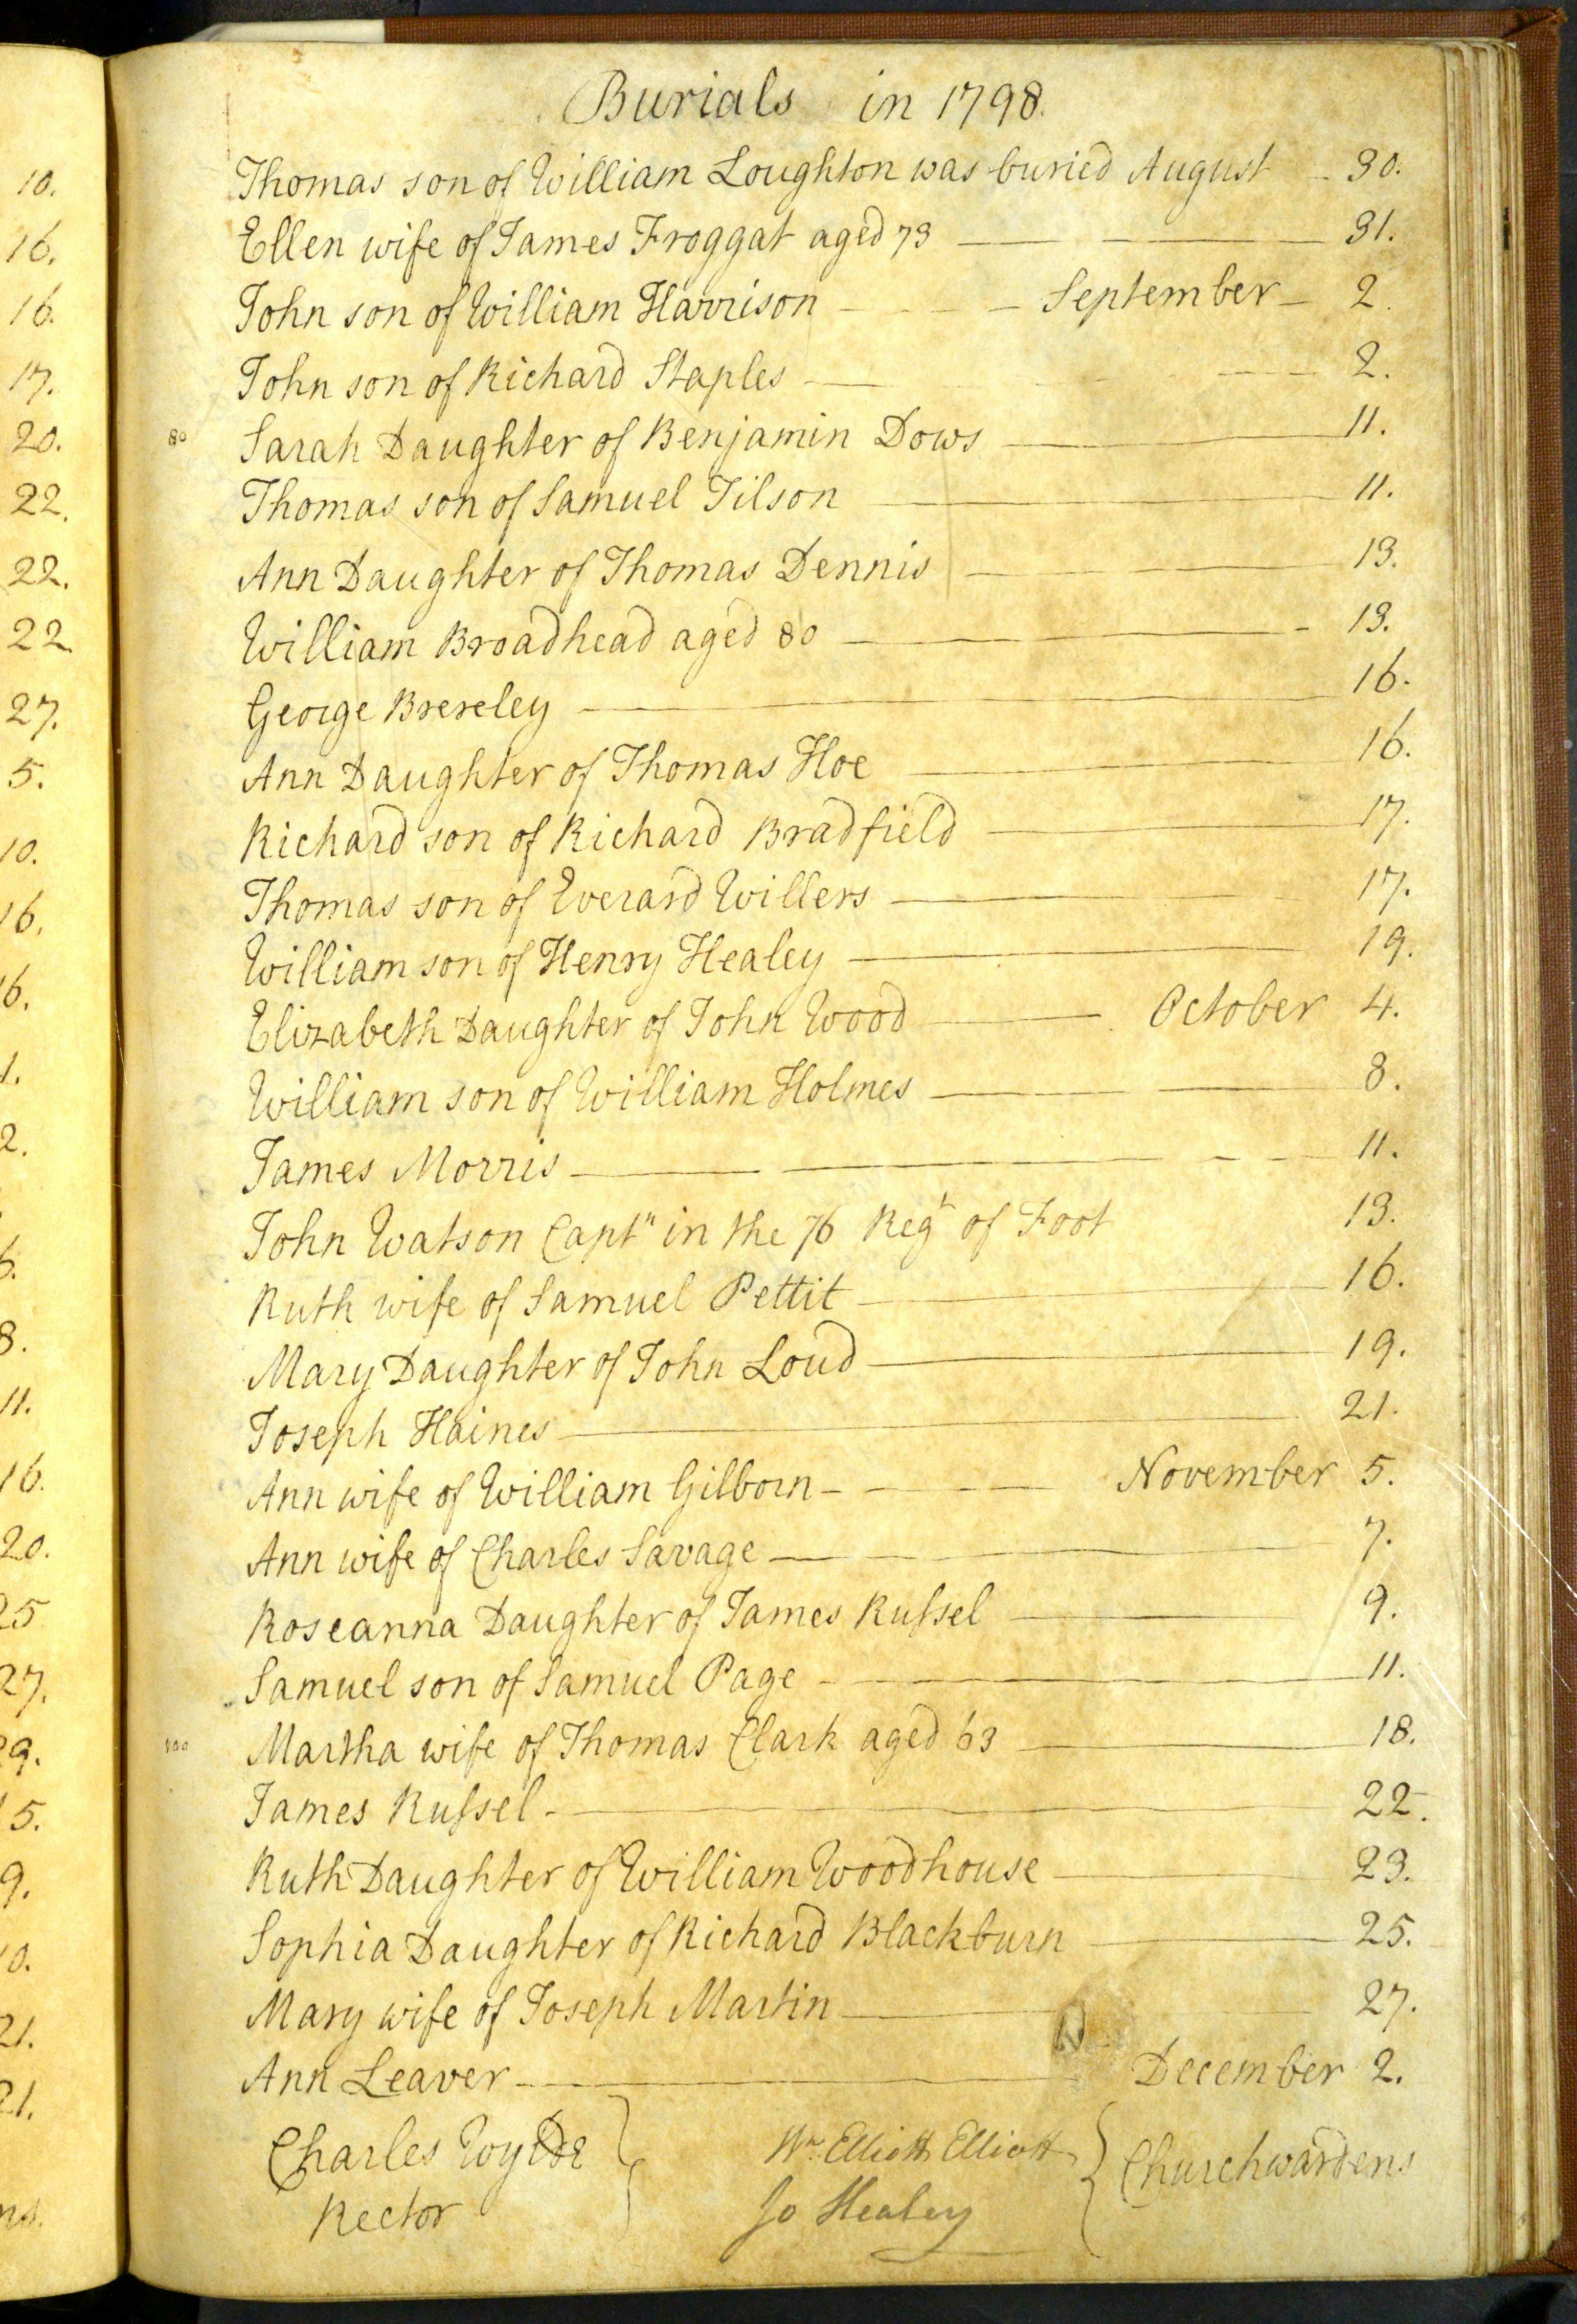 Burials in 1798.
Thomas son of William Loughton was buried August 30.
Ellen wife of James Froggat aged 73 31.
John son of William Harrison September 2.
John son of Richard Staples 2.
80 Sarah Daughter of Benjamin Dows 11.
Thomas son of Samuel Tilson 11.
Ann Daughter of Thomas Dennis 13.
William Broadhead aged 80 13.
George Brereley 16.
Ann Daughter of Thomas Hoe 16.
Richard son of Richard Bradfield 17.
Thomas son of Everard Willers 17.
William son of Henry Healey 19.
Elizabeth Daughter of John Wood October 4.
William son of William Holmes 8.
James Morris 11.
John Watson Captn in the 76 Regt of Foot 13.
Ruth wife of Samuel Pettit 16.
Mary Daughter of John Loud 19.
Joseph Haines 21.
Ann wife of William Gilborn November 5.
Ann wife of Charles Savage 7.
Roseanna Daughter of James Ruſsel 9.
Samuel son of Samuel Page 11.
100 Martha wife of Thomas Clark aged 63 18.
James Ruſsel 22.
Ruth Daughter of William Woodhouse 23.
Sophia Daughter of Richard Blackburn 25.
Mary wife of Joseph Martin 27.
Ann Leaver December 2.
Charles Wylde Wm Elliott Elliott Churchwardens
Rector Jo Healey
10.
16.
16.
17.
20.
22.
22.
22
27.
5.
10.
16.
6.
1.
2.
8.
11.
16.
20.
25
27.
9.
5.
9.
0.
21.
21.